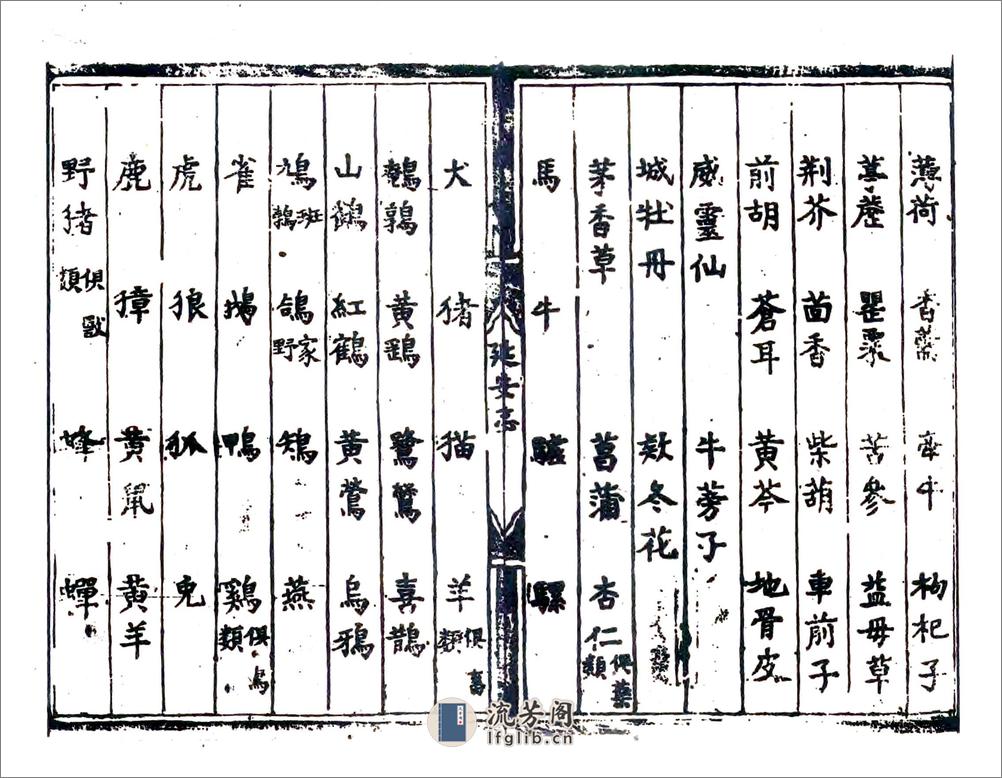 薄荷 香薷 牽牛 枸杞子
苦參 益毋草
荆芥 茴香 柴葫 車前子
前胡 蒼耳 黄芩 地骨皮
威靈仙 牛蒡子
城牡丹 欵冬花
茅香草 菖蒲 杏仁 俱藥類
馬 牛 驢 騾
延安志
犬 猪 猫 羊 俱畜類
鵪鶉 鷺鷥 喜鵲
山 紅鶴 黄鶯 烏鴉
鳩 班鵓 鴿 家野 雉 燕
雀 鵝 鴨 鷄 俱鳥類
虎 狼 狐 兎
鹿 獐 黄鼠 黄羊
野猪 俱獸類 蜂 蟬
流芳阁
lfglib.cn